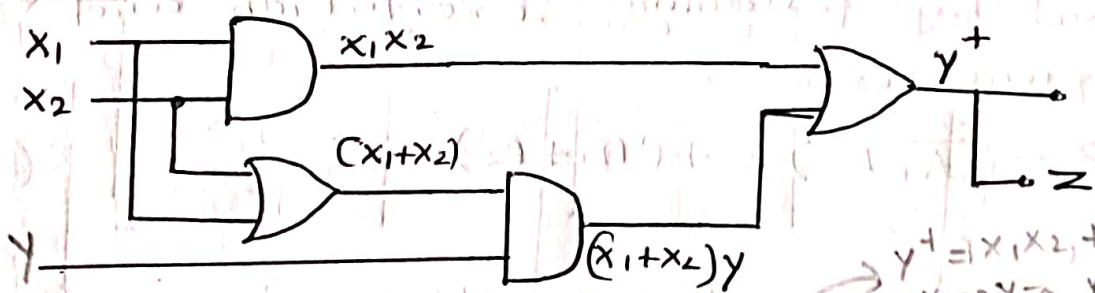 x₁
x₂
x₁x₂
y⁺
(x₁+x₂)
z
y
(x₁+x₂)y
y⁺ = x₁x₂ +